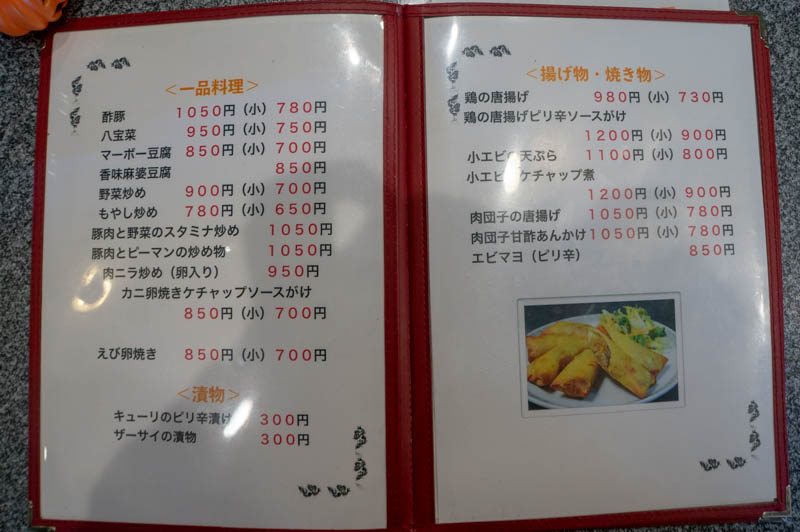 ＜一品料理＞
酢豚 1050円（小）780円
八宝菜 950円（小）750円
マーボー豆腐 850円（小）700円
香味麻婆豆腐 850円
野菜炒め 900円（小）700円
もやし炒め 780円（小）650円
豚肉と野菜のスタミナ炒め 1050円
豚肉とピーマンの炒め物 1050円
肉ニラ炒め（卵入り） 950円
カニ卵焼きケチャップソースがけ
850円（小）700円
えび卵焼き 850円（小）700円
＜漬物＞
キューリのピリ辛漬け 300円
ザーサイの漬物 300円
＜揚げ物・焼き物＞
鶏の唐揚げ 980円（小）730円
鶏の唐揚げピリ辛ソースがけ
1200円（小）900円
小エビの天ぷら 1100円（小）800円
小エビのケチャップ煮
1200円（小）900円
肉団子の唐揚げ 1050円（小）780円
肉団子甘酢あんかけ1050円（小）780円
エビマヨ（ピリ辛） 850円